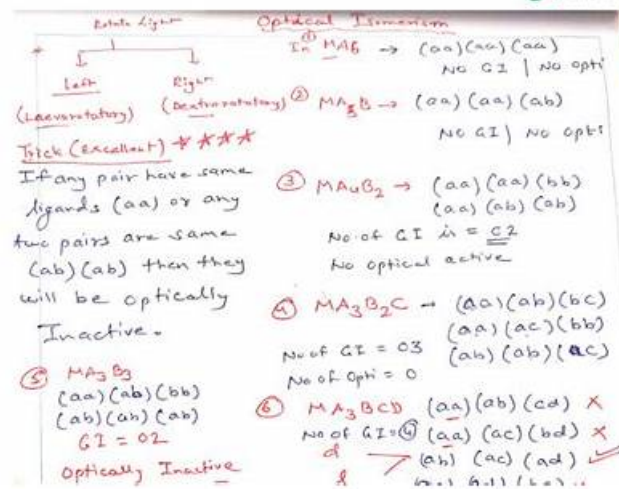 Rotate Light
Left
Right
(Laevorotatory)
(Dextrorotatory)
Trick (Excellent) ****
If any pair have same
ligands (aa) or any
two pairs are same
(ab)(ab) then they
will be optically
Inactive.
⑤ MA3B3
(aa)(ab)(bb)
(ab)(ab)(ab)
GI = 02
Optically Inactive
Optical Isomerism
① In MA6 → (aa)(aa)(aa)
No GI | No opti
② MA5B → (aa)(aa)(ab)
No GI | No opti
③ MA4B2 → (aa)(aa)(bb)
(aa)(ab)(ab)
No. of GI is = 02
No optical active
④ MA3B2C → (aa)(ab)(bc)
(aa)(ac)(bb)
(ab)(ab)(ac)
No of GI = 03
No of opti = 0
⑥ MA3BCD (aa)(ab)(cd) ×
No of GI=④ (aa)(ac)(bd) ×
d
(ab)(ac)(ad) ✓
l